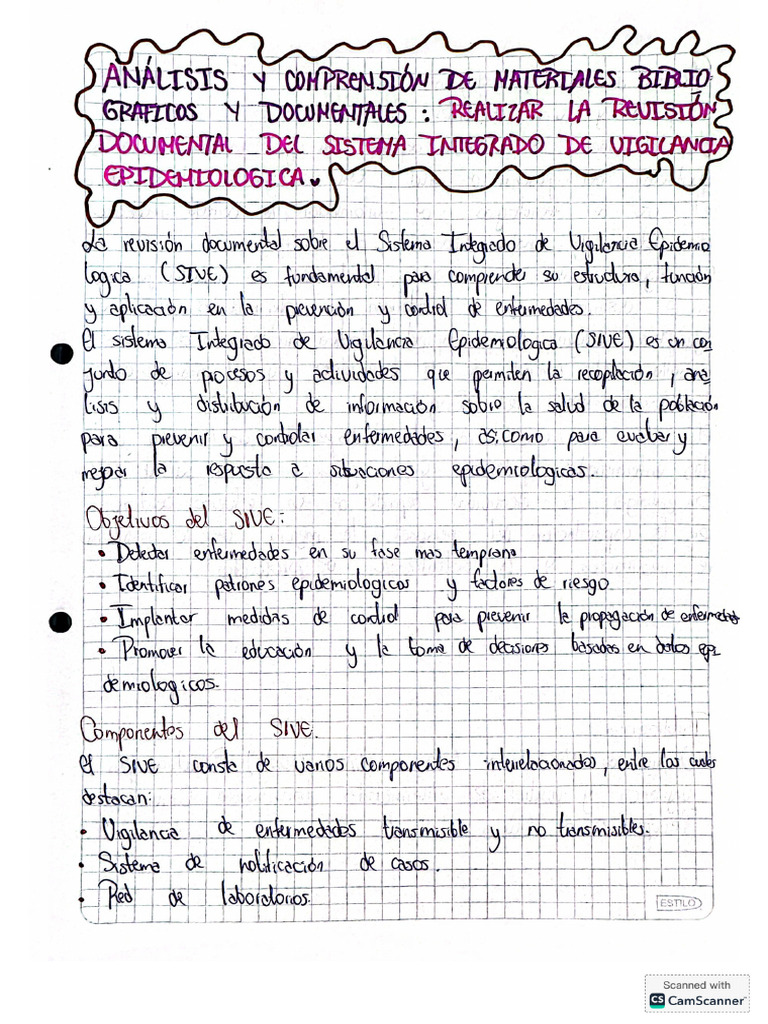 ANÁLISIS Y COMPRENSIÓN DE MATERIALES BIBLIO
GRAFICOS Y DOCUMENTALES: REALIZAR LA REVISIÓN
DOCUMENTAL DEL SISTEMA INTEGRADO DE VIGILANCIA
EPIDEMIOLOGICA.
La revisión documental sobre el Sistema Integrado de Vigilancia Epidemio
logica (SIVE) es fundamental para comprende su estructura, función
y aplicación en la prevención y control de enfermedades.
El sistema Integrado de Vigilancia Epidemiologica (SIVE) es un con
junto de procesos y actividades que permiten la recopilación, aná
lisis y distribución de información sobre la salud de la población
para prevenir y controlar enfermedades, así como para evaluar y
mejorar la respuesta a situaciones epidemiologicas.
Objetivos del SIVE:
• Detectar enfermedades en su fase mas temprana
• Identificar patrones epidemiologicos y factores de riesgo
• Implantar medidas de control para prevenir la propagación de enfermedades
• Promover la educación y la toma de decisiones basadas en datos epi
demiologicos.
Componentos del SIVE.
El SIVE consta de varios componentes interrelacionados, entre los cuales
destacan:
• Vigilancia de enfermedades transmisible y no transmisibles.
• Sistema de notificación de casos.
• Red de laboratorios.
ESTILO
Scanned with
CS CamScanner